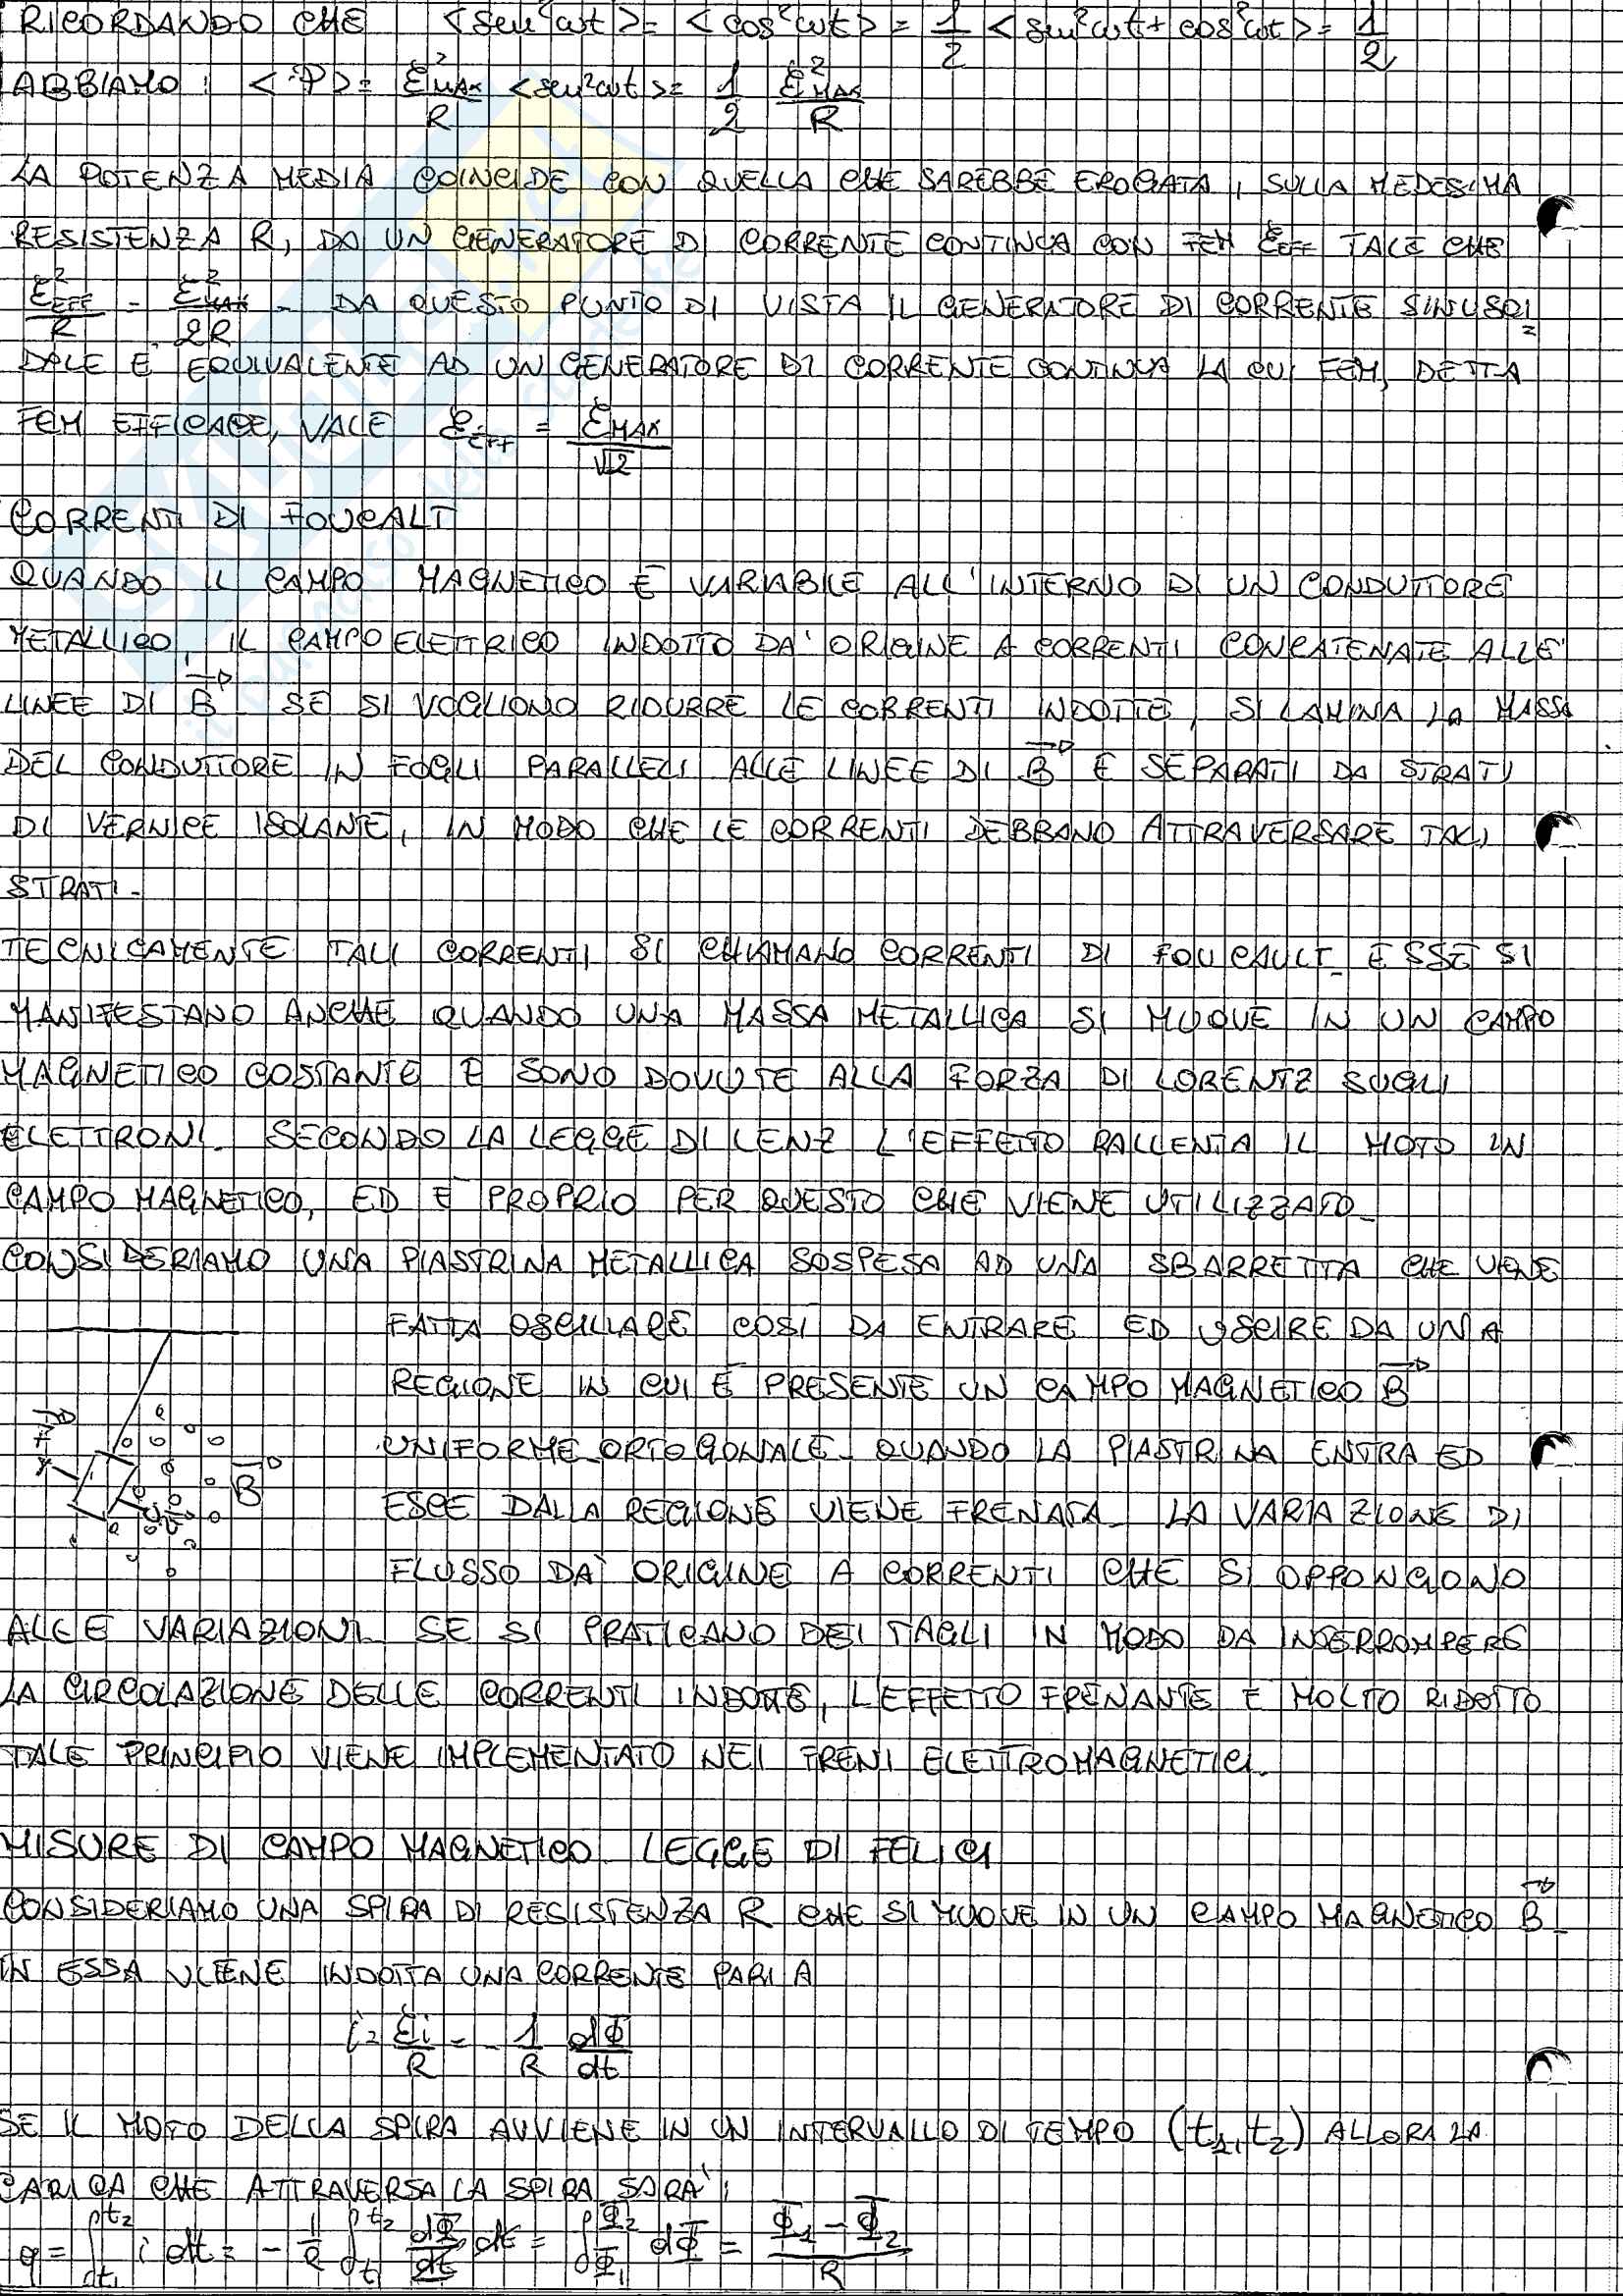 RICORDANDO CHE <sen²ωt> = <cos²ωt> = 1/2 <sen²ωt + cos²ωt> = 1/2
ABBIAMO: <P> = ε²MAX/R <sen²ωt> = 1/2 ε²MAX/R
LA POTENZA MEDIA COINCIDE CON QUELLA CHE SAREBBE EROGATA, SULLA MEDESIMA
RESISTENZA R, DA UN GENERATORE DI CORRENTE CONTINUA CON FEM εEFF TALE CHE
ε²EFF/R = ε²MAX/2R - DA QUESTO PUNTO DI VISTA IL GENERATORE DI CORRENTE SINUSOI=
DALE È EQUIVALENTE AD UN GENERATORE DI CORRENTE CONTINUA LA CUI FEM, DETTA
FEM EFFICACE, VALE εEFF = εMAX/√2
CORRENTI DI FOUCALT
QUANDO IL CAMPO MAGNETICO È VARIABILE ALL'INTERNO DI UN CONDUTTORE
METALLICO, IL CAMPO ELETTRICO INDOTTO DA' ORIGINE A CORRENTI CONCATENATE ALLE
LINEE DI B⃗ SE SI VOGLIONO RIDURRE LE CORRENTI INDOTTE, SI LAMINA LA MASSA
DEL CONDUTTORE IN FOGLI PARALLELI ALLE LINEE DI B⃗ E SEPARATI DA STRATI
DI VERNICE ISOLANTE, IN MODO CHE LE CORRENTI DEBBANO ATTRAVERSARE TALI
STRATI-
TECNICAMENTE TALI CORRENTI SI CHIAMANO CORRENTI DI FOUCAULT- ESSE SI
MANIFESTANO ANCHE QUANDO UNA MASSA METALLICA SI MUOVE IN UN CAMPO
MAGNETICO COSTANTE E SONO DOVUTE ALLA FORZA DI LORENTZ SUGLI
ELETTRONI. SECONDO LA LEGGE DI LENZ L'EFFETTO RALLENTA IL MOTO IN
CAMPO MAGNETICO, ED È PROPRIO PER QUESTO CHE VIENE UTILIZZATO-
CONSIDERIAMO UNA PIASTRINA METALLICA SOSPESA AD UNA SBARRETTA CHE VIENE
FATTA OSCILLARE COSÌ DA ENTRARE ED USCIRE DA UNA
REGIONE IN CUI È PRESENTE UN CAMPO MAGNETICO B⃗
UNIFORME ORTOGONALE- QUANDO LA PIASTRINA ENTRA ED
ESCE DALLA REGIONE VIENE FRENATA- LA VARIAZIONE DI
FLUSSO DÀ ORIGINE A CORRENTI CHE SI OPPONGONO
F⃗
B⃗
ALLE VARIAZIONI- SE SI PRATICANO DEI TAGLI IN MODO DA INTERROMPERE
LA CIRCOLAZIONE DELLE CORRENTI INDOTTE, L'EFFETTO FRENANTE È MOLTO RIDOTTO
TALE PRINCIPIO VIENE IMPLEMENTATO NEI FRENI ELETTROMAGNETICI.
MISURE DI CAMPO MAGNETICO LEGGE DI FELICI
CONSIDERIAMO UNA SPIRA DI RESISTENZA R CHE SI MUOVE IN UN CAMPO MAGNETICO B⃗-
IN ESSA VIENE INDOTTA UNA CORRENTE PARI A
i = εi/R = - 1/R dΦ/dt
SE IL MOTO DELLA SPIRA AVVIENE IN UN INTERVALLO DI TEMPO (t1, t2) ALLORA LA
CARICA CHE ATTRAVERSA LA SPIRA SARÀ:
q = ∫t1^t2 i dt = - 1/R ∫t1^t2 dΦ/dt dt = ∫Φ1^Φ2 dΦ = (Φ1 - Φ2)/R